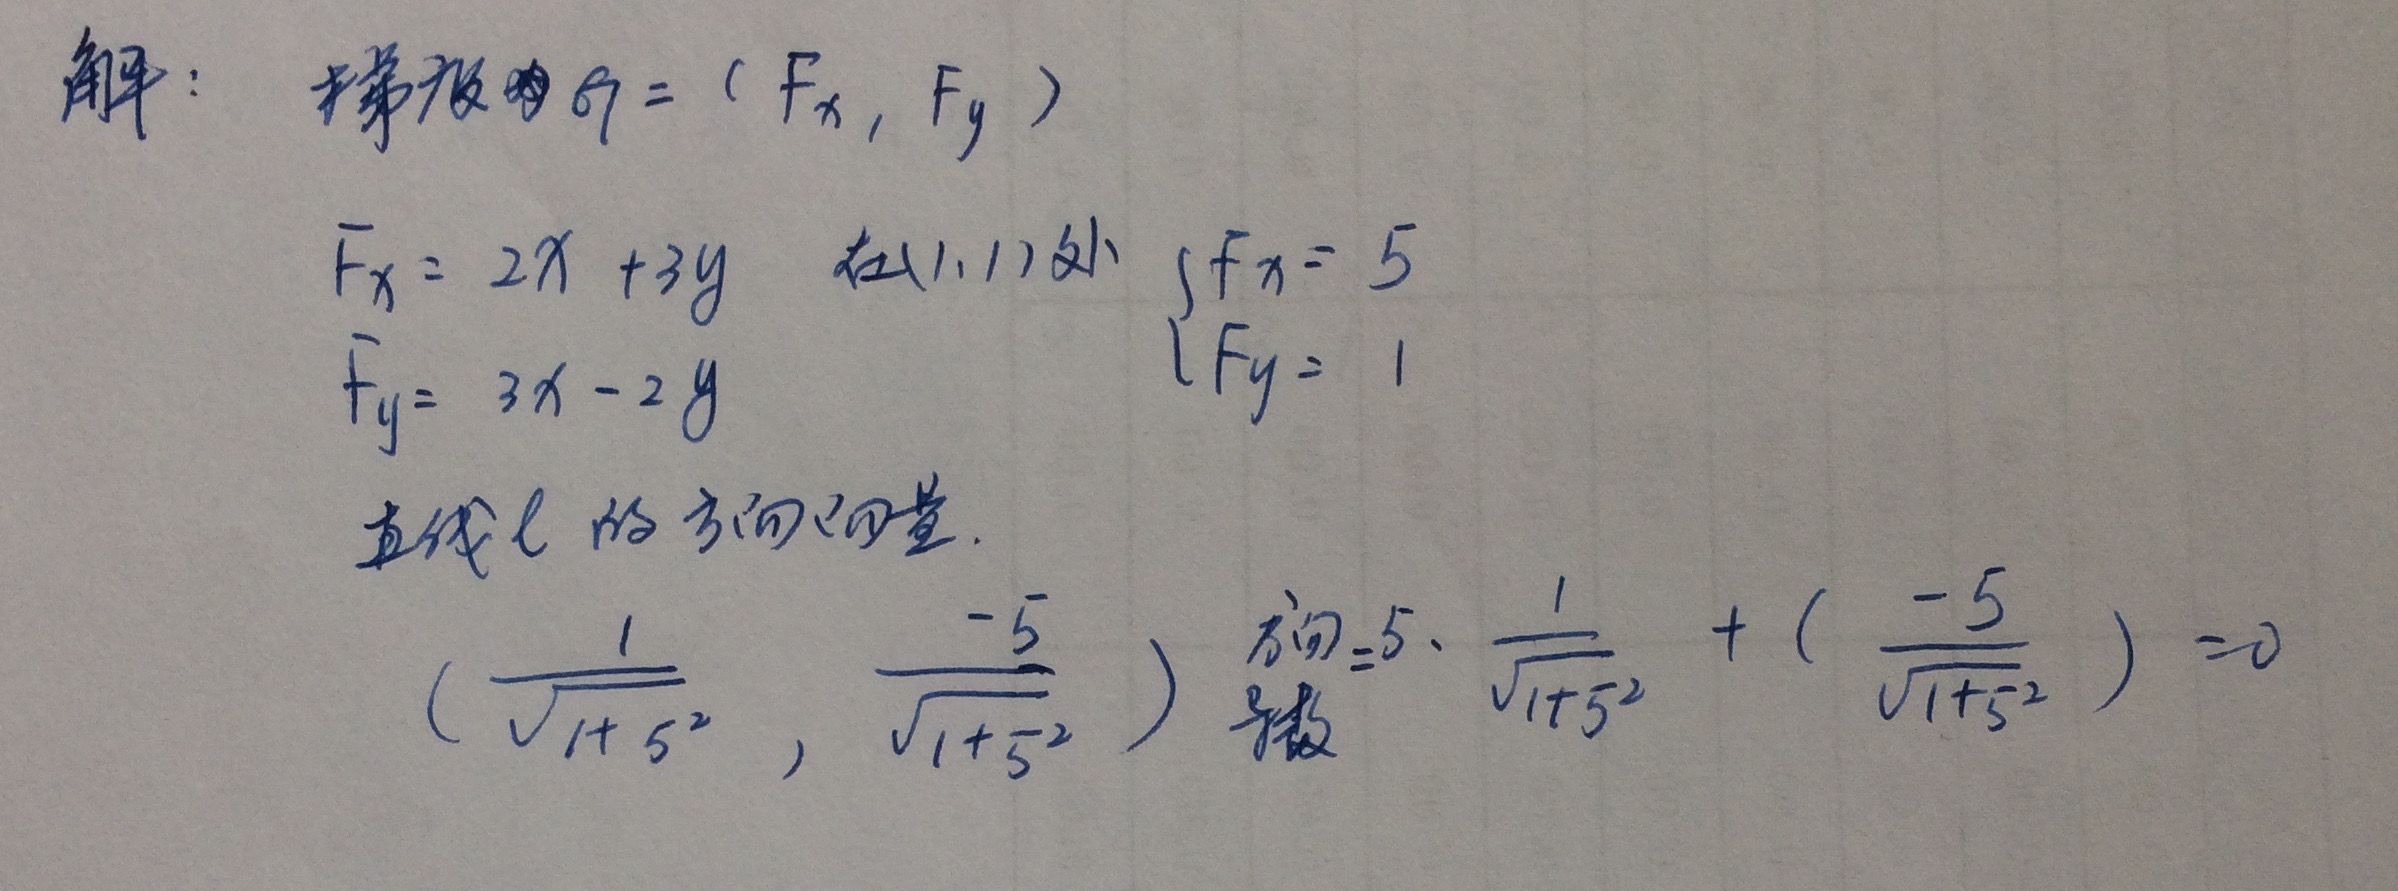 解: 梯度 G = ( Fx, Fy )
Fx = 2x + 3y 在(1,1)处 { Fx = 5
Fy = 3x - 2y { Fy = 1
直线 l 的方向向量.
( 1/√(1+5²) , -5/√(1+5²) ) 方向导数 = 5 · 1/√(1+5²) + ( -5/√(1+5²) ) = 0